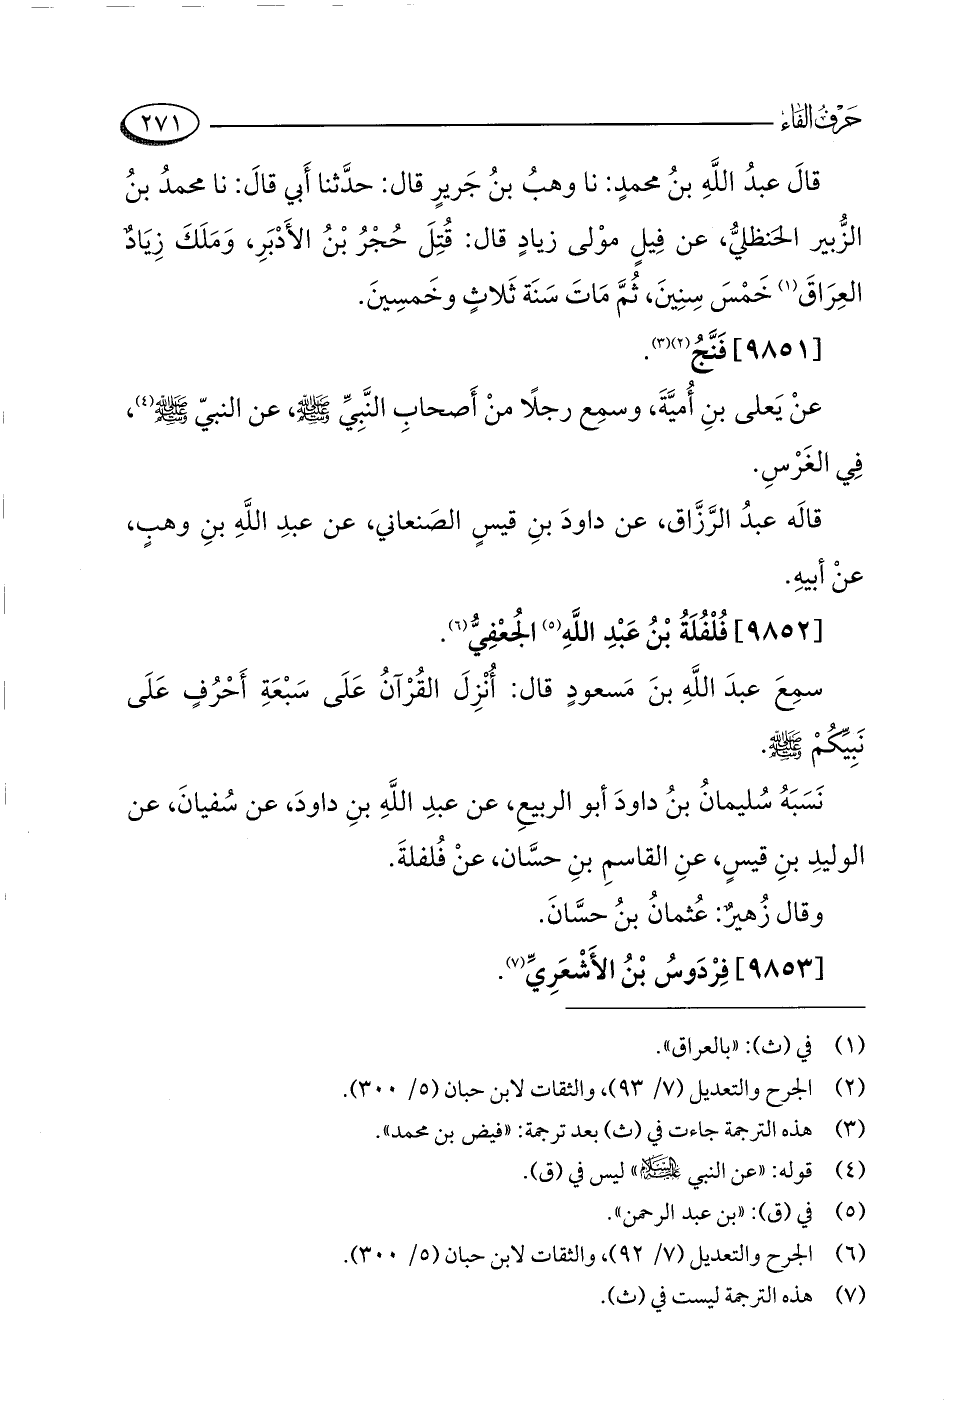 حَرْفُ الفَاء ٢٧١
قالَ عبدُ اللَّهِ بنُ محمدٍ: نا وهبُ بنُ جَريرٍ قال: حدَّثنا أَبي قالَ: نا محمدُ بنُ
الزُّبير الحَنظليُّ، عن فِيلٍ موْلى زيادٍ قال: قُتِلَ حُجْرُ بْنُ الأَدْبَرِ، وَمَلَكَ زِيَادٌ
العِرَاقَ(١) خَمْسَ سِنِينَ، ثُمَّ مَاتَ سَنَة ثَلاثٍ وخَمسِينَ.
[٩٨٥١] فَنَّجُ(٢)(٣).
عنْ يَعلى بنِ أُميَّةَ، وسمِع رجلًا منْ أَصحابِ النَّبِيِّ ﷺ، عن النبيّ ﷺ(٤)،
فِي الغَرْسِ.
قالَه عبدُ الرَّزَّاق، عن داودَ بنِ قيسٍ الصَنعاني، عن عبدِ اللَّهِ بنِ وهبٍ،
عنْ أبيهِ.
[٩٨٥٢] فُلْفُلَةُ بْنُ عَبْدِ اللَّهِ(٥) الجُعْفِيُّ(٦).
سمِعَ عبدَ اللَّهِ بنَ مَسعودٍ قال: أُنْزِلَ القُرْآنُ عَلَى سَبْعَةِ أَحْرُفٍ عَلَى
نَبِيِّكُمْ ﷺ.
نَسَبَهُ سُليمانُ بنُ داودَ أبو الربيعِ، عن عبدِ اللَّهِ بنِ داودَ، عن سُفيانَ، عن
الوليدِ بنِ قيسٍ، عنِ القاسمِ بنِ حسَّان، عنْ فُلفلةَ.
وقال زُهيرٌ: عُثمانُ بنُ حسَّانَ.
[٩٨٥٣] فِرْدَوسُ بْنُ الأَشْعَرِيِّ(٧).
(١) في (ث): «بالعراق».
(٢) الجرح والتعديل (٧/ ٩٣)، والثقات لابن حبان (٥/ ٣٠٠).
(٣) هذه الترجمة جاءت في (ث) بعد ترجمة: «فيض بن محمد».
(٤) قوله: «عن النبي عليه السلام» ليس في (ق).
(٥) في (ق): «بن عبد الرحمن».
(٦) الجرح والتعديل (٧/ ٩٢)، والثقات لابن حبان (٥/ ٣٠٠).
(٧) هذه الترجمة ليست في (ث).